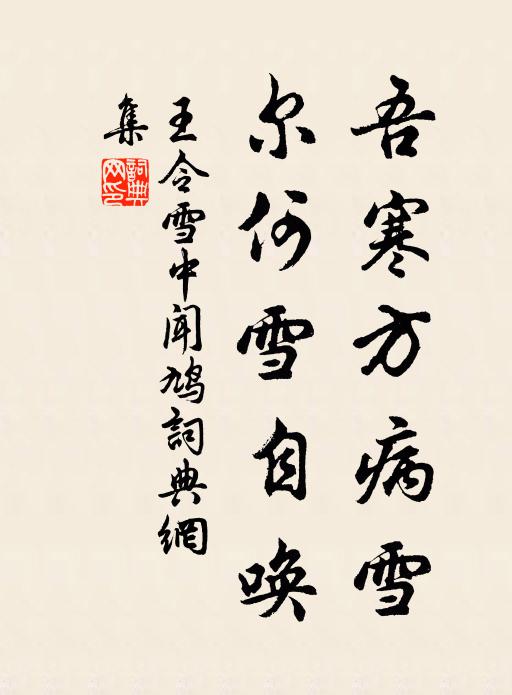 吾寒方病雪
尔何雪自唤
王令雪中闻鸠詞典網
集
詞典網印